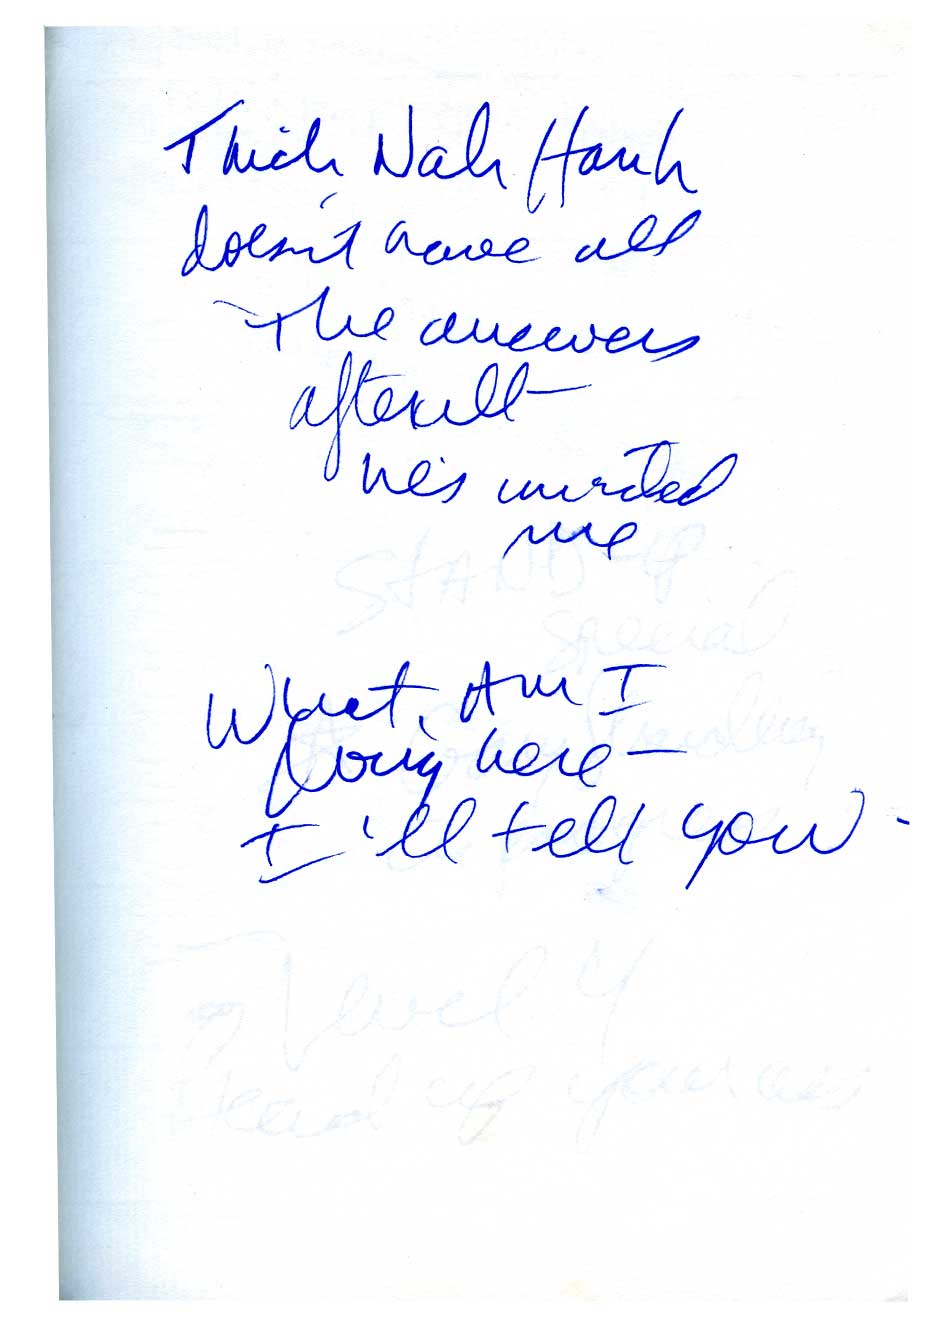 Thich Nah Hanh
doesn't have all
the answers
afterall—
he's invited
me
What Am I
Doing here—
I'll tell you.
STAND UP
special